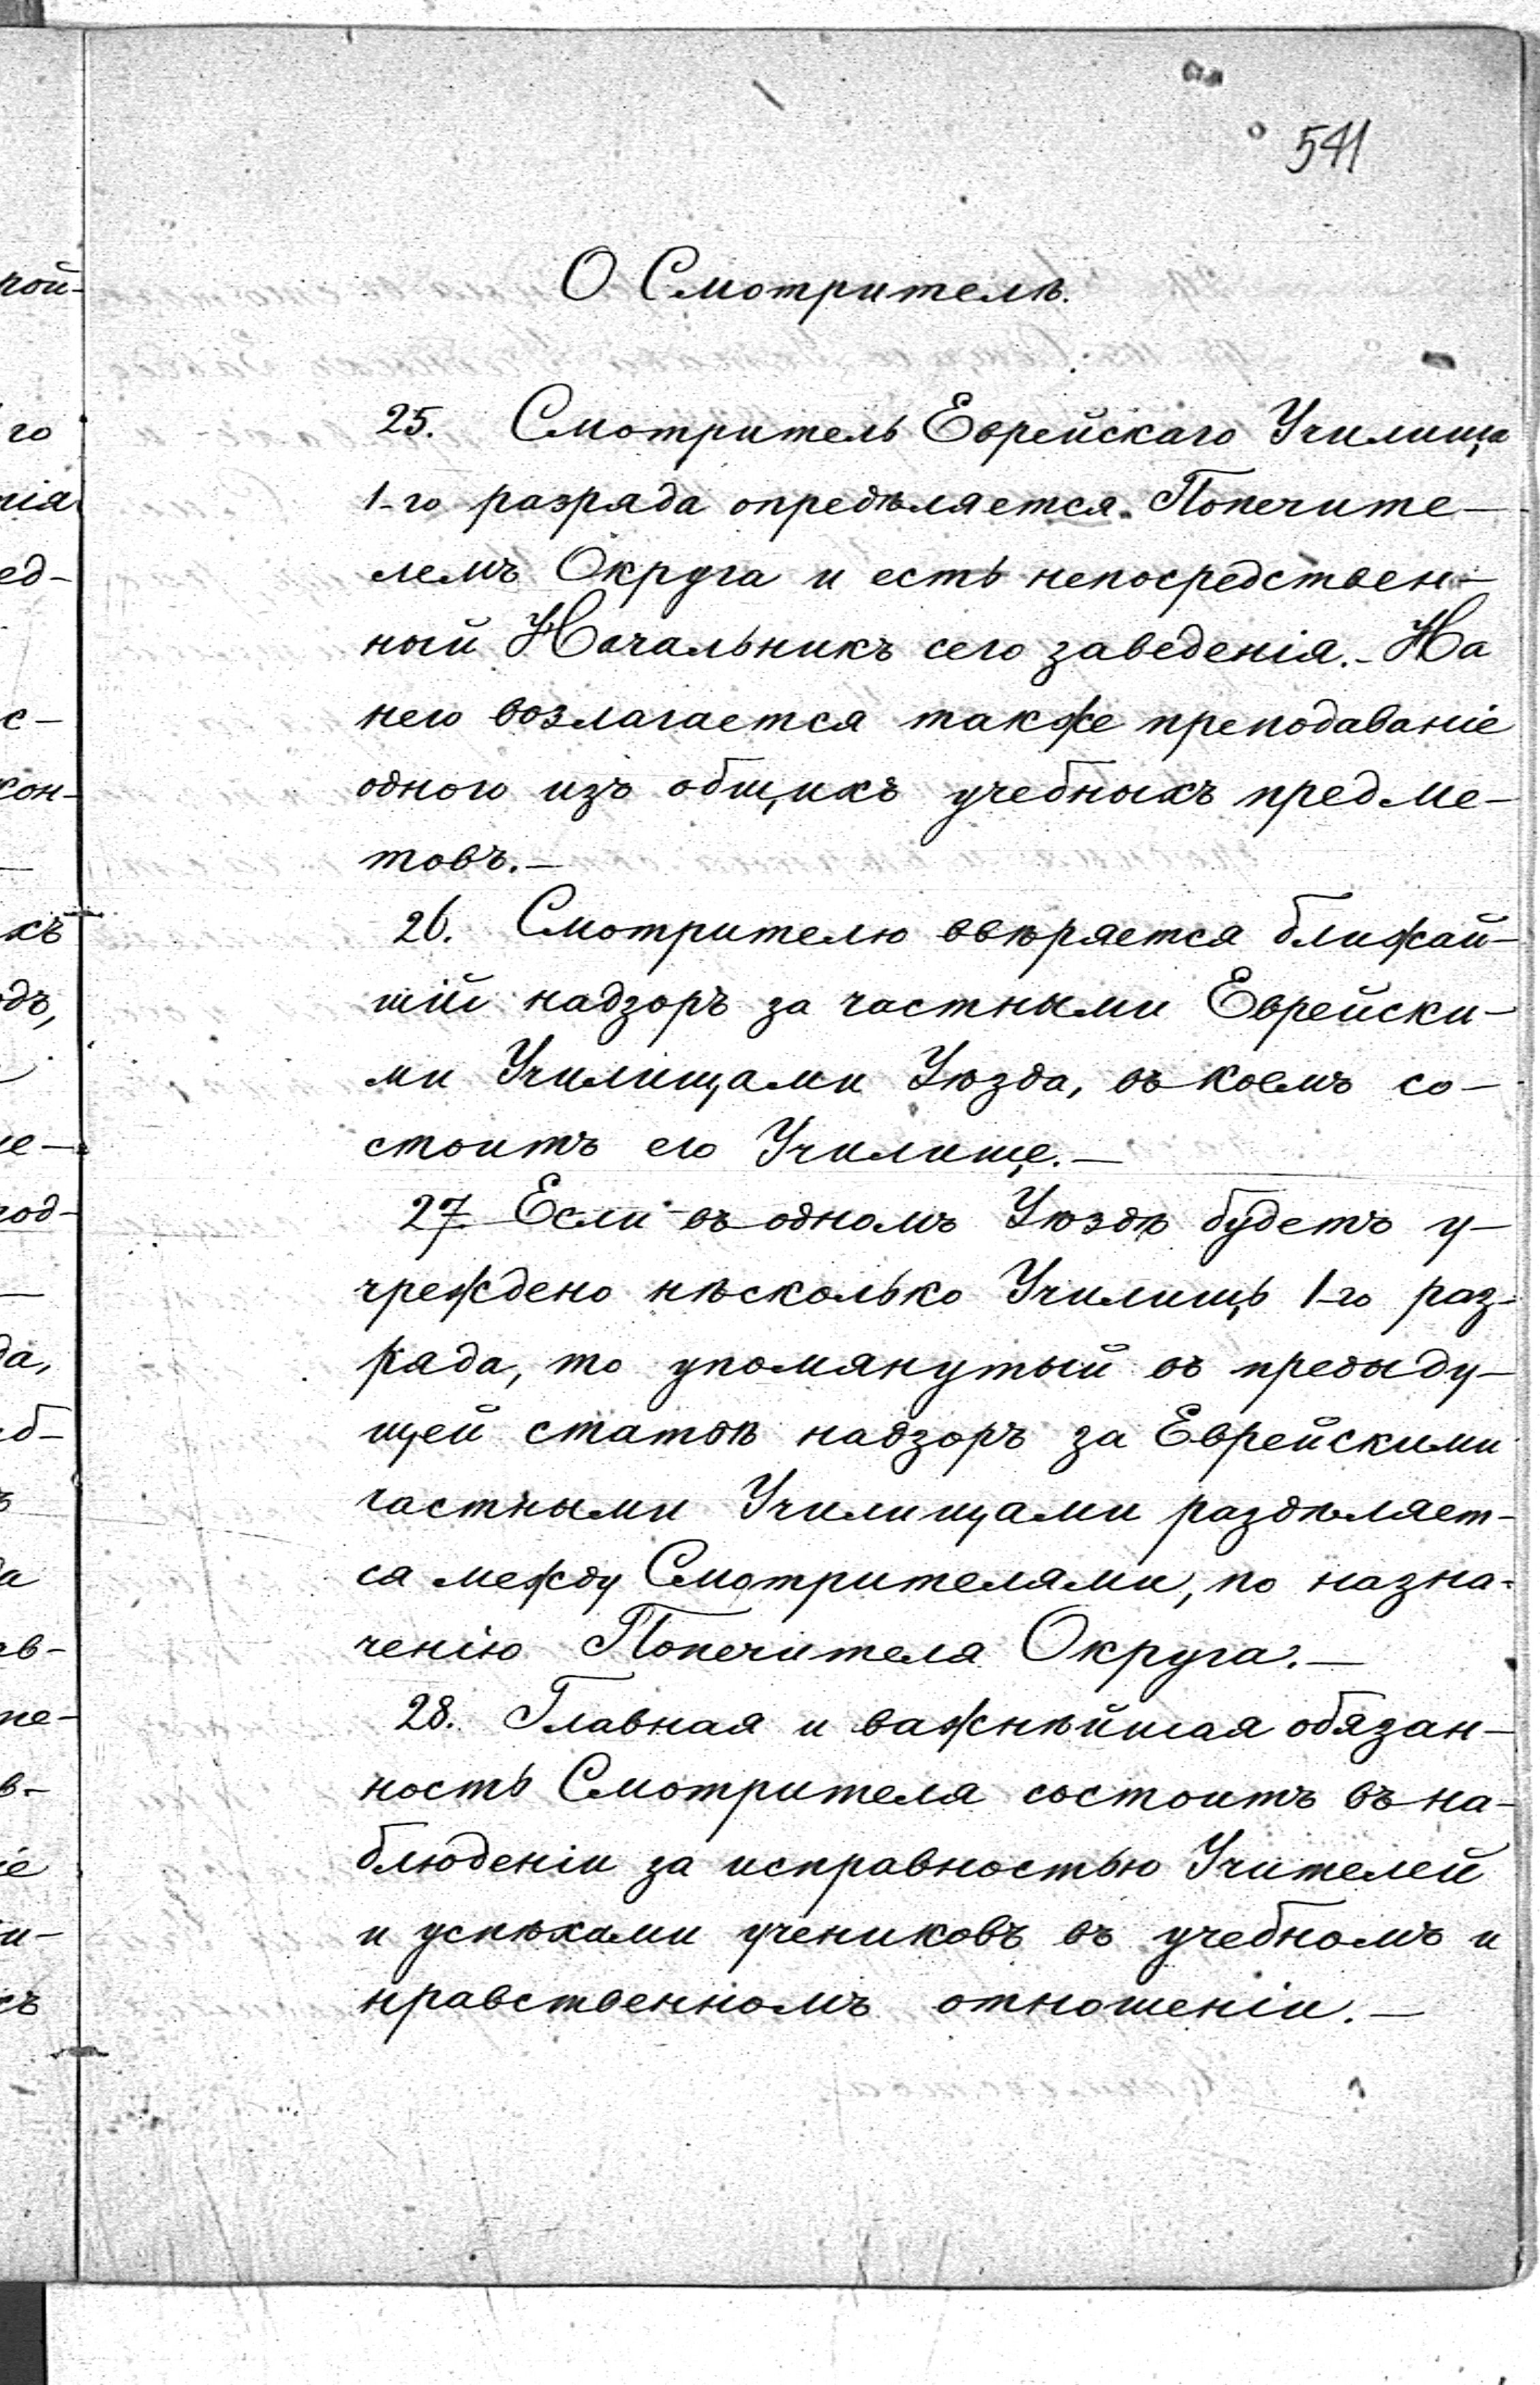 541
О Смотрителѣ.
25. Смотритель Еврейскаго Училища
1-го разряда опредѣляется Попечите-
лемъ Округа и есть непосредствен-
ный Начальникъ сего заведенія.- На
него возлагается также преподаваніе
одного изъ общихъ учебныхъ предме-
товъ.-
26. Смотрителю ввѣряется ближай-
шій надзоръ за частными Еврейски-
ми Училищами Уѣзда, въ коемъ со-
стоитъ его Училище.-
27. Если въ одномъ Уѣздѣ будетъ у-
чреждено нѣсколько Училищъ 1-го раз-
ряда, то упомянутый въ предыду-
щей статьѣ надзоръ за Еврейскими
частными Училищами раздѣляет-
ся между Смотрителями, по назна-
ченію Попечителя Округа.-
28. Главная и важнѣйшая обязан-
ность Смотрителя состоитъ въ на-
блюденіи за исправностью Учителей
и успѣхами учениковъ въ учебномъ и
нравственномъ отношеніи.-